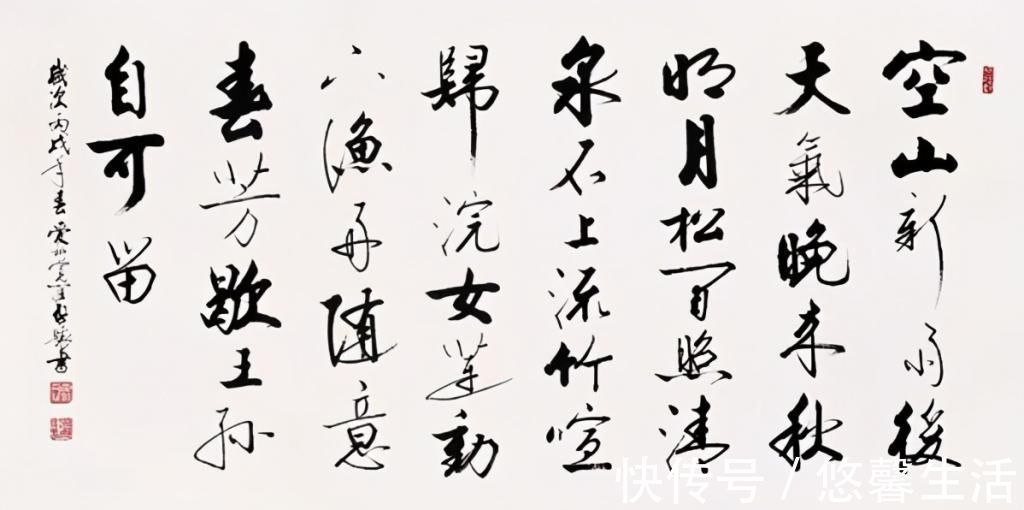 空山新雨後
天氣晚来秋
明月松间照清
泉石上流竹喧
歸浣女莲動
下漁舟随意
春芳歇王孙
自可留
歲次丙戌年春 書
快传号 / 悠馨生活